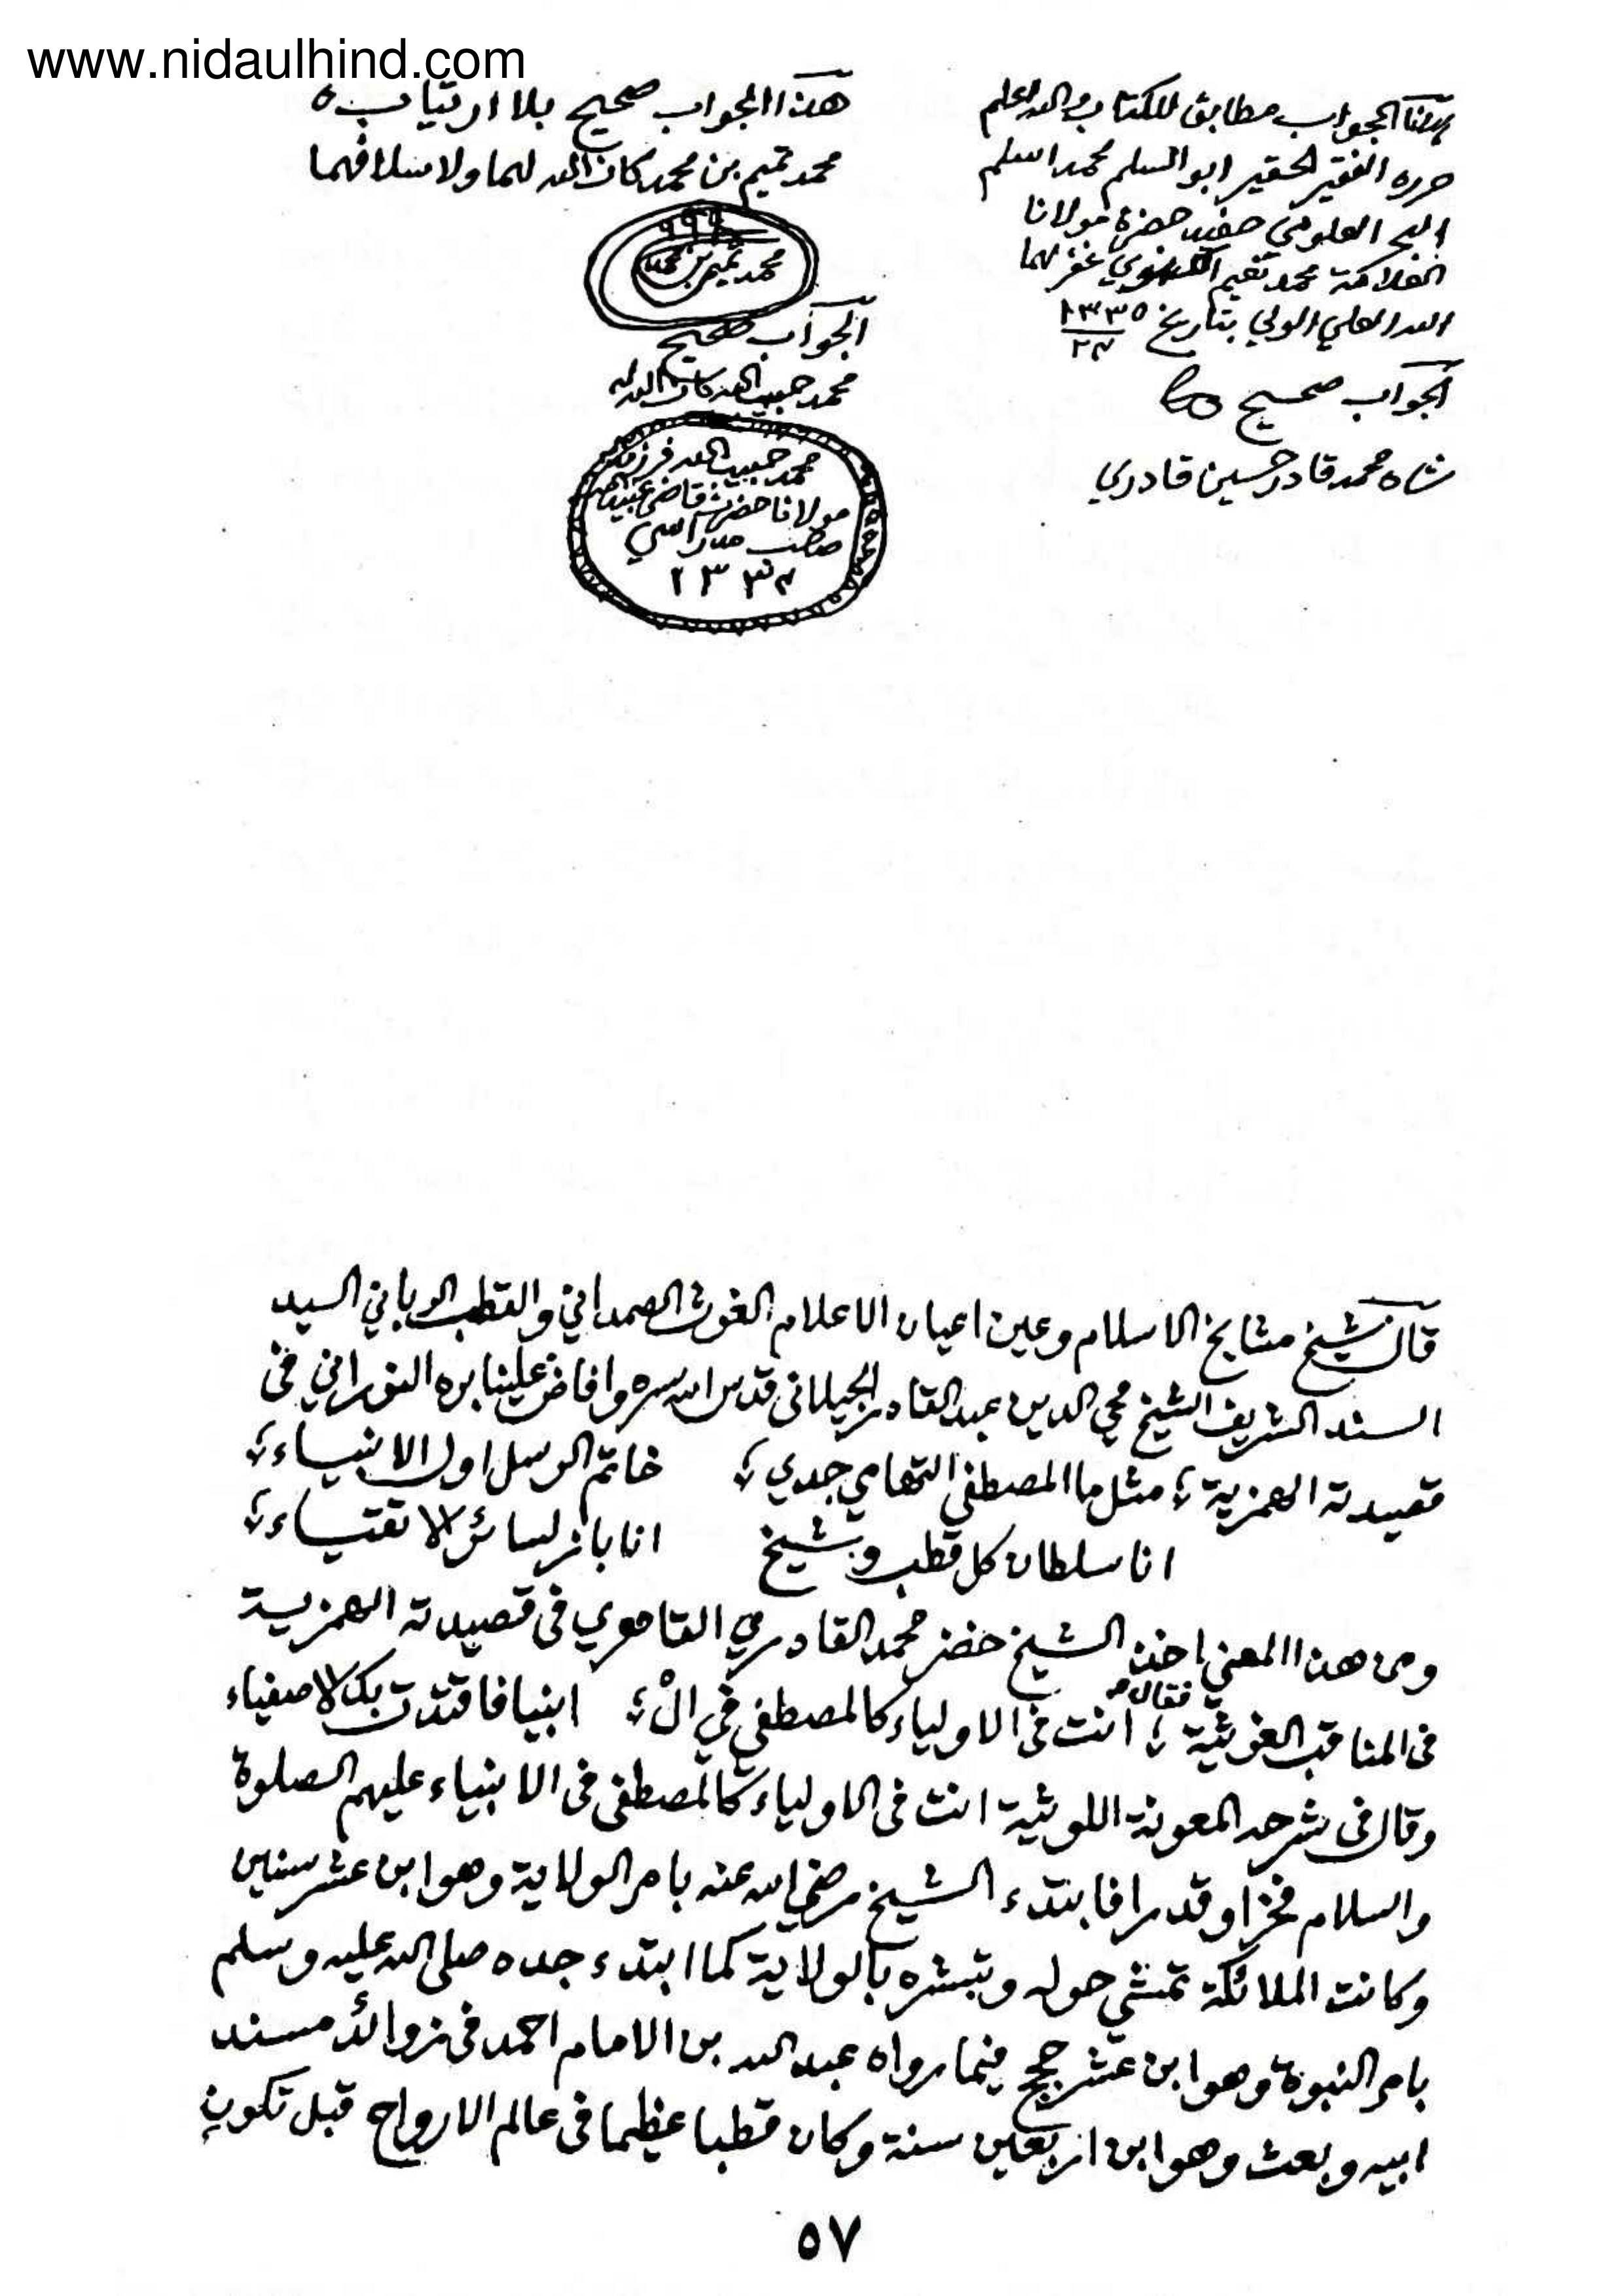 www.nidaulhind.com
هذا الجواب مطابق للكتاب والله اعلم
حرره الفقير الحقير ابو السلم محمد اسلم
العلومي حفيد حضرة مولانا
العلامة محمد نعيم اللكنوي غفر لهما
الله العلي الولي بتاريخ ١٣٣٥
٢٤
الجواب صحيح
شاه محمد قادر حسين قادري
هذا الجواب صحيح بلا ارتياب ٥
محمد تميم بن محمد كان الله لهما ولاسلافهما
محمد تميم بن محمد
الجواب صحيح
محمد حبيب الله كان الله له
محمد حبيب الله فرزند
مولانا حضرت قاضي عبيد الله
صاحب مدراسي
١٣٣٤
قال شيخ مشايخ الاسلام وعين اعيان الاعلام الغوث الصمداني والقطب الرباني السيد
السند الشريف الشيخ محي الدين عبد القادر الجيلاني قدس الله سره وافاض علينا بره النوراني في
قصيدته الهمزية ؛ مثل ما المصطفى التهامي جدي ؛ خاتم الرسل اول الانبياء ؛
انا سلطان كل قطب وشيخ انا باز لسائر الاتقياء ؛
ومن هذا المعنى اخذ الشيخ خضر محمد القادري القاهري في قصيدته الهمزية
في المناقب الغوثية ؛ فقال انت في الاولياء كالمصطفى في ال ؛ انبيا فاقتدت بك الاصفياء
وقال في شرحه المعونة اللوثية انت في الاولياء كالمصطفى في الانبياء عليهم الصلوة
والسلام فخرا وقدرا فابتدء الشيخ رضي الله عنه بامر الولاية وهو ابن عشر سنين
وكانت الملائكة تمشي حوله وتبشره بالولاية كما ابتدء جده صلى الله عليه وسلم
بامر النبوة وهو ابن عشر حجج فيما رواه عبد الله بن الامام احمد في زوائد مسند
ابيه وبعث وهو ابن اربعين سنة وكان قطبا عظيما في عالم الارواح قبل تكوين
٥٧